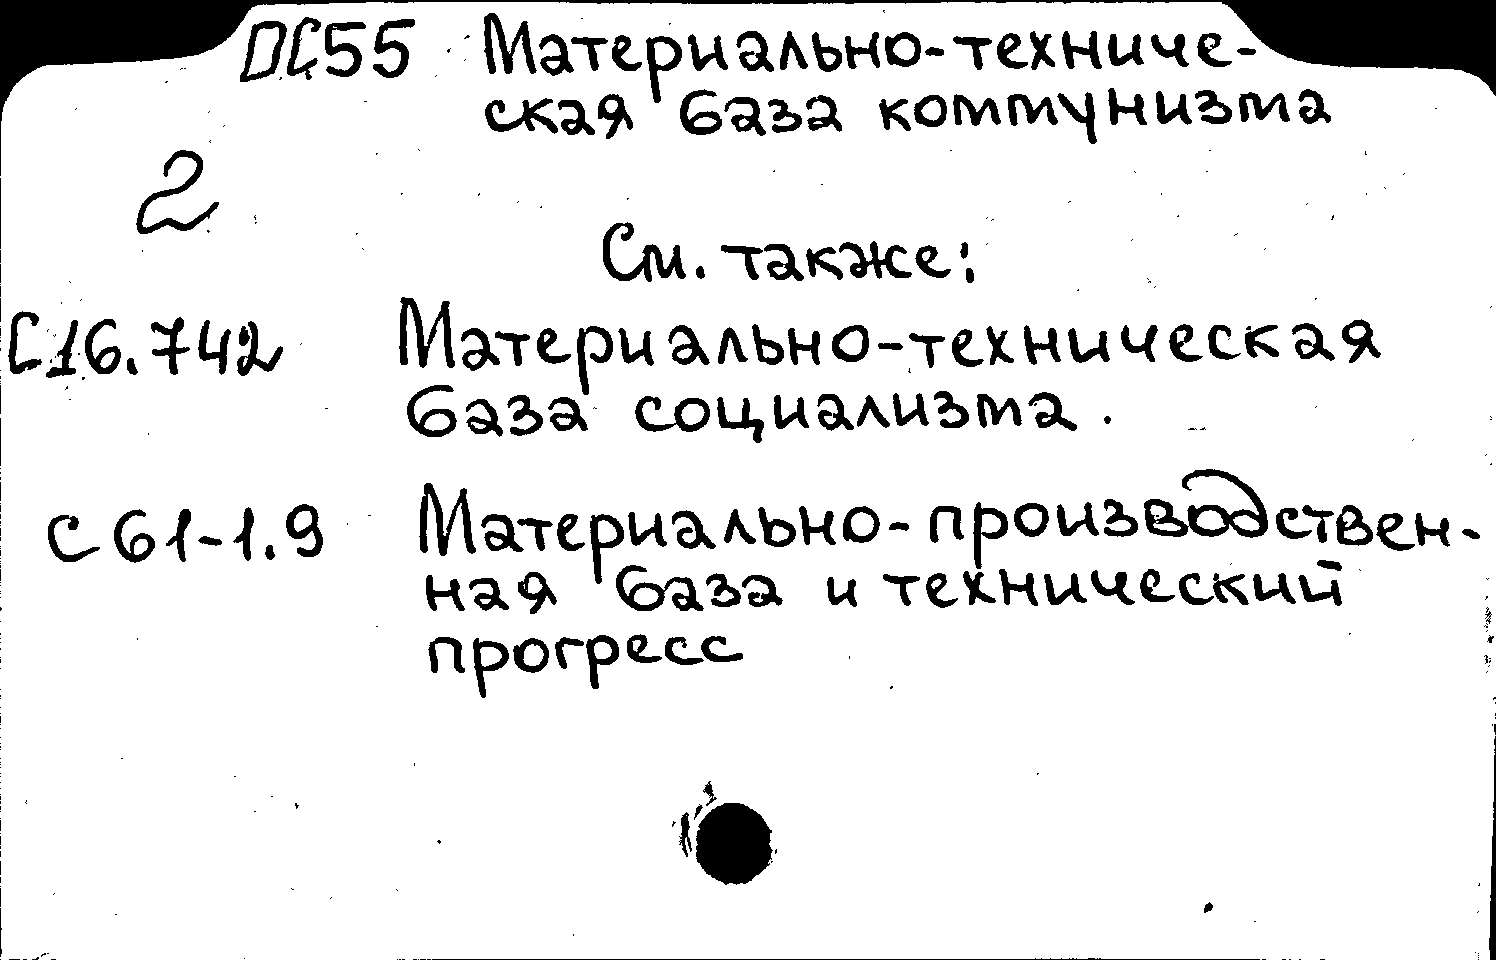 ОС55 Материально-техниче-
ская база коммунизма
2
См. также:
С16.742 Материально-техническая
база социализма.
С61-1.9 Материально-производствен-
ная база и технический
прогресс